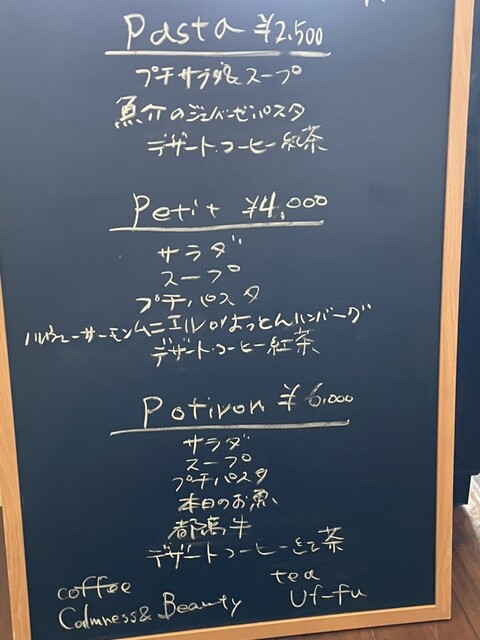 Pasta ¥2,500
プチサラダ&スープ
魚介のジェノベーゼパスタ
デザート・コーヒー紅茶
Petit ¥4,000
サラダ
スープ
プチパスタ
ノルウェーサーモンムニエル or まっとんハンバーグ
デザート・コーヒー紅茶
Potiron ¥6,000
サラダ
スープ
プチパスタ
本日のお魚
都萬牛
デザートコーヒー 茶
coffee
Calmness & Beauty
tea
Uf-fu